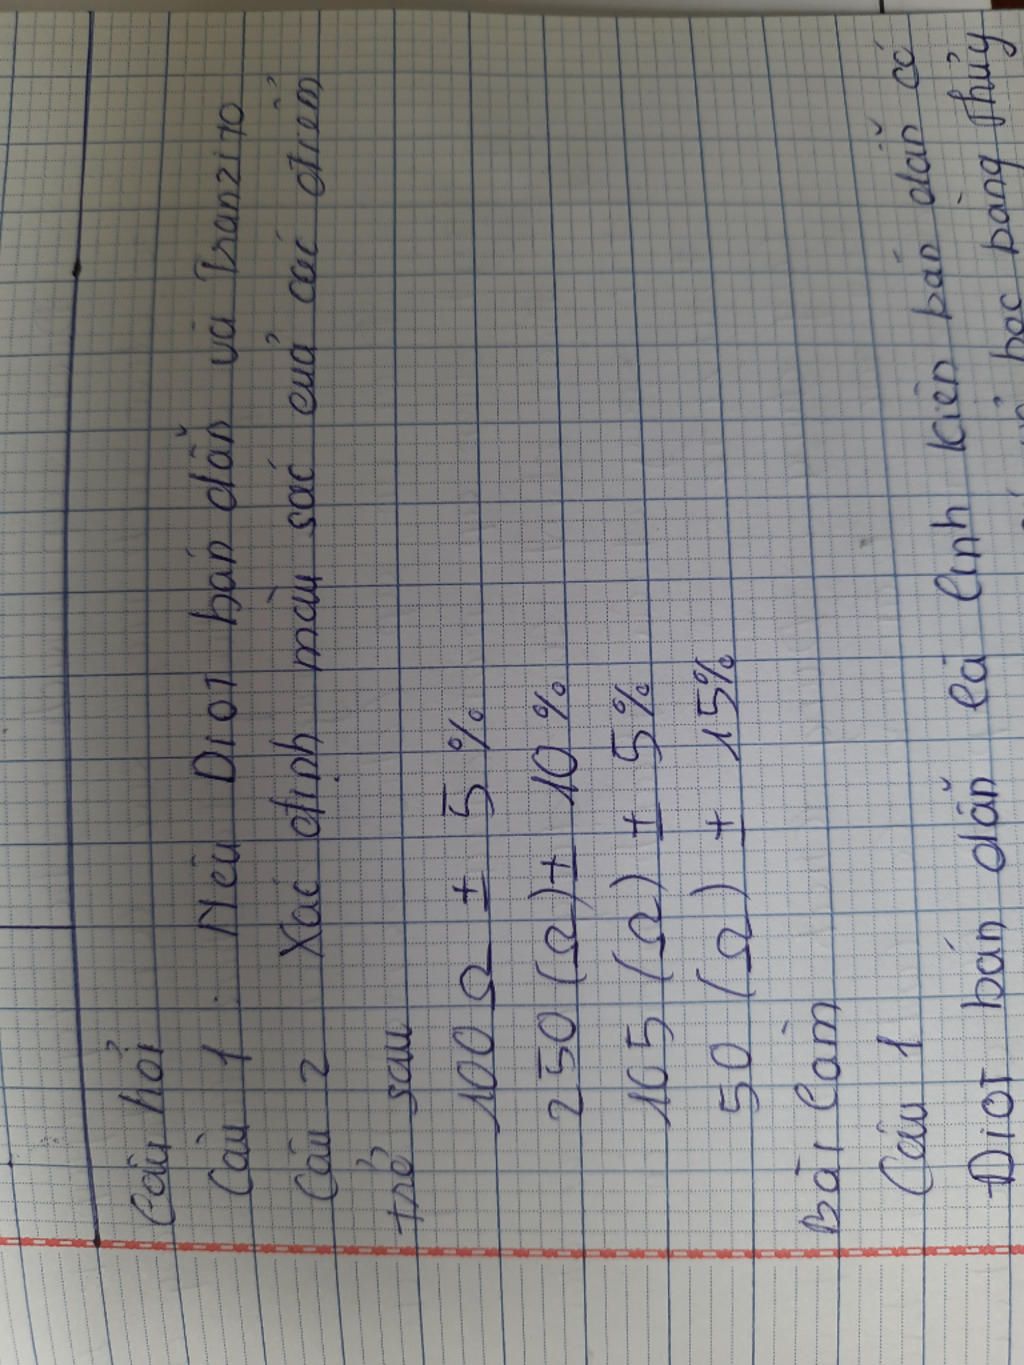 Câu hỏi
Câu 1: Nêu Điot bán dẫn và Tranzito
Câu 2 Xác định màu sắc của các điện
trở sau
100 Ω ± 5%
250 (Ω) ± 10%
105 (Ω) ± 5%
50 (Ω) ± 15%
Bài làm
Câu 1
Điot bán dẫn là linh kiện bán dẫn có
bọc bằng thủy